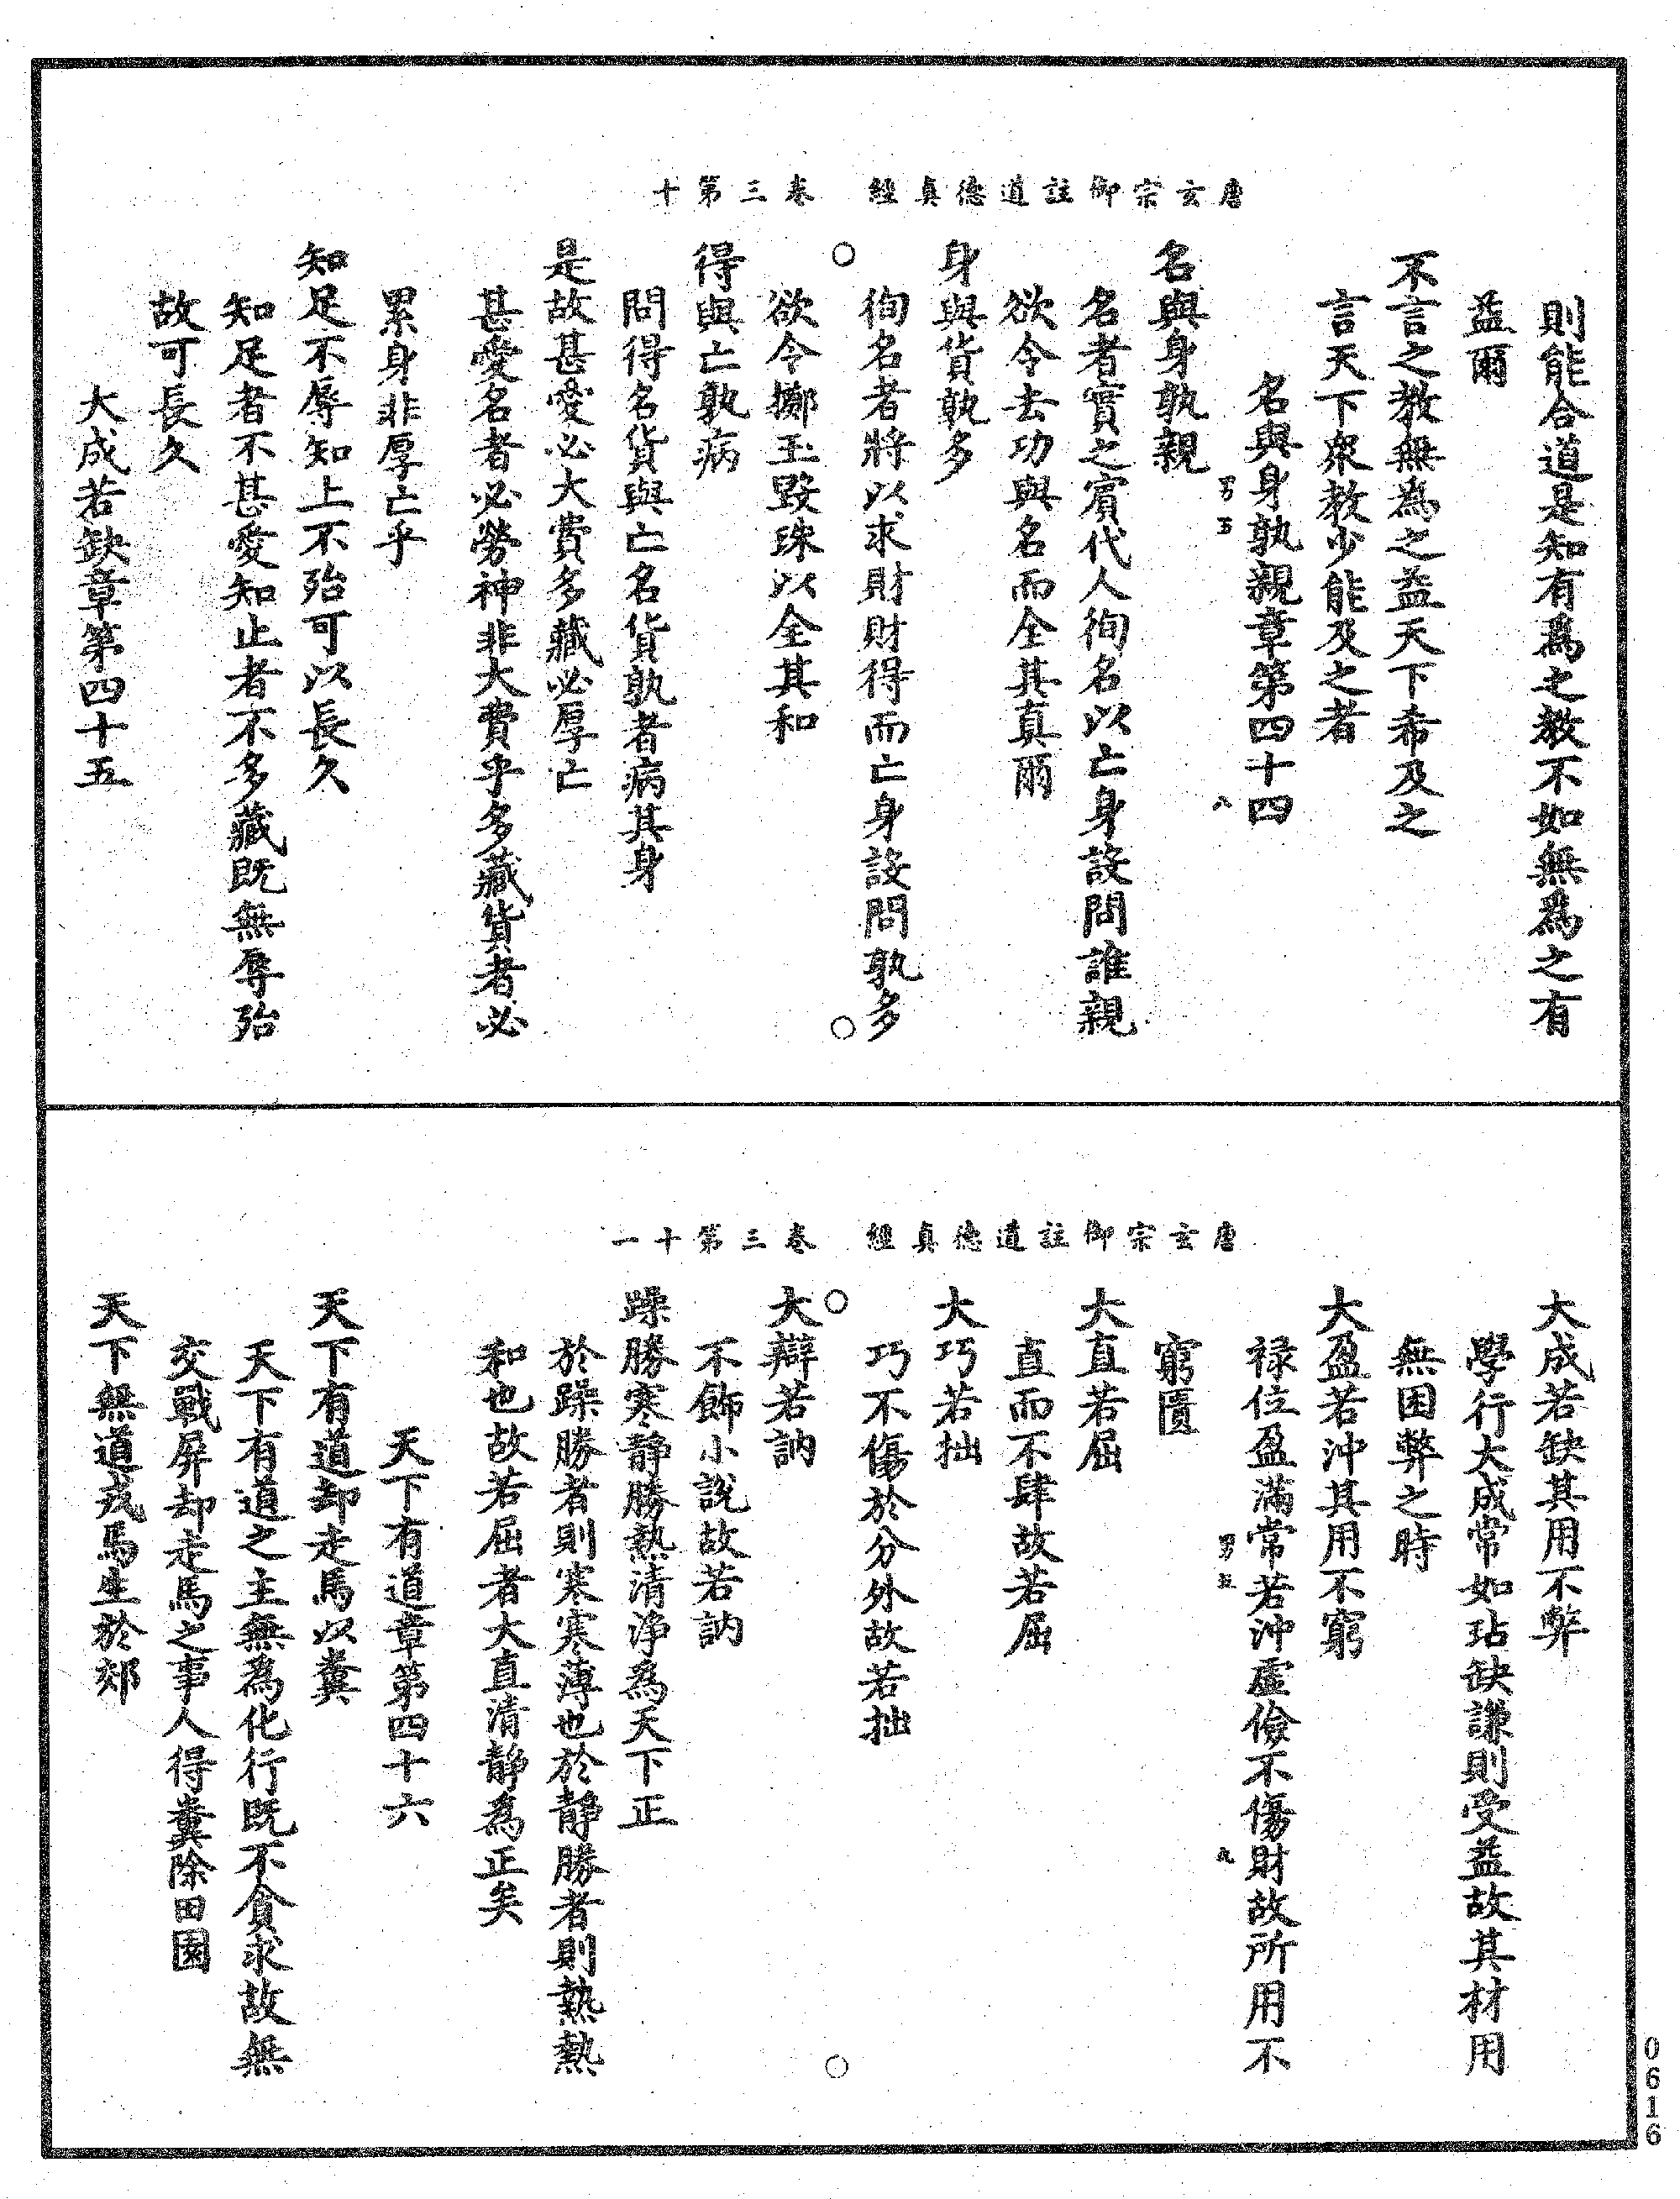 唐玄宗御註道德真經　卷三第十
則能合道是知有爲之教不如無爲之有
益爾
不言之教無爲之益天下希及之
言天下衆教少能及之者
名與身孰親章第四十四
男五　八
名與身孰親
名者實之賓代人徇名以亡身設問誰親
欲令去功與名而全其真爾
身與貨孰多
徇名者將以求財財得而亡身設問孰多
欲令擲玉毀珠以全其和
得與亡孰病
問得名貨與亡名貨孰者病其身
是故甚愛必大費多藏必厚亡
甚愛名者必勞神非大費乎多藏貨者必
累身非厚亡乎
知足不辱知止不殆可以長久
知足者不甚愛知止者不多藏既無辱殆
故可長久
大成若缺章第四十五
唐玄宗御註道德真經　卷三第十一
大成若缺其用不弊
學行大成常如玷缺謙則受益故其材用
無困弊之時
大盈若沖其用不窮
祿位盈滿常若沖虛儉不傷財故所用不
男五　九
窮匱
大直若屈
直而不肆故若屈
大巧若拙
巧不傷於分外故若拙
大辯若訥
不飾小說故若訥
躁勝寒靜勝熱清淨為天下正
於躁勝者則寒寒薄也於靜勝者則熱熱
和也故若屈者大直清靜為正矣
天下有道章第四十六
天下有道却走馬以糞
天下有道之主無為化行既不貪求故無
交戰屏却走馬之事人得糞除田園
天下無道戎馬生於郊
0616